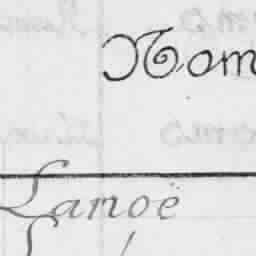 Nom
Lanoë